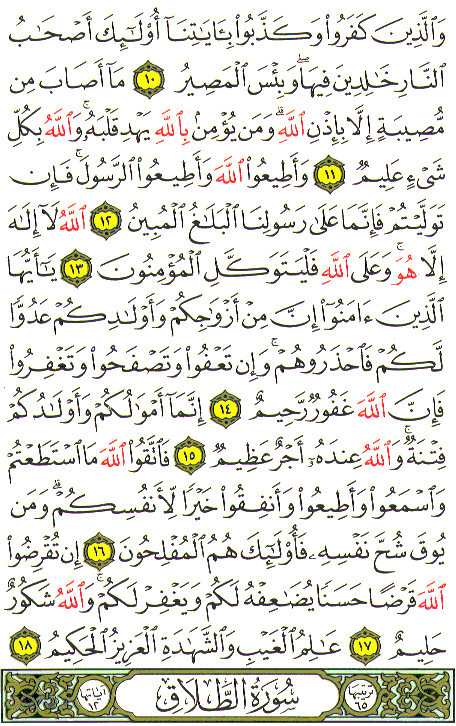 وَٱلَّذِينَ كَفَرُوا۟ وَكَذَّبُوا۟ بِـَٔايَٰتِنَآ أُو۟لَٰٓئِكَ أَصْحَٰبُ
ٱلنَّارِ خَٰلِدِينَ فِيهَا ۖ وَبِئْسَ ٱلْمَصِيرُ ١٠ مَآ أَصَابَ مِن
مُّصِيبَةٍ إِلَّا بِإِذْنِ ٱللَّهِ ۗ وَمَن يُؤْمِنۢ بِٱللَّهِ يَهْدِ قَلْبَهُۥ ۚ وَٱللَّهُ بِكُلِّ
شَىْءٍ عَلِيمٌ ١١ وَأَطِيعُوا۟ ٱللَّهَ وَأَطِيعُوا۟ ٱلرَّسُولَ ۚ فَإِن
تَوَلَّيْتُمْ فَإِنَّمَا عَلَىٰ رَسُولِنَا ٱلْبَلَٰغُ ٱلْمُبِينُ ١٢ ٱللَّهُ لَآ إِلَٰهَ
إِلَّا هُوَ ۚ وَعَلَى ٱللَّهِ فَلْيَتَوَكَّلِ ٱلْمُؤْمِنُونَ ١٣ يَٰٓأَيُّهَا
ٱلَّذِينَ ءَامَنُوٓا۟ إِنَّ مِنْ أَزْوَٰجِكُمْ وَأَوْلَٰدِكُمْ عَدُوًّا
لَّكُمْ فَٱحْذَرُوهُمْ ۚ وَإِن تَعْفُوا۟ وَتَصْفَحُوا۟ وَتَغْفِرُوا۟
فَإِنَّ ٱللَّهَ غَفُورٌ رَّحِيمٌ ١٤ إِنَّمَآ أَمْوَٰلُكُمْ وَأَوْلَٰدُكُمْ
فِتْنَةٌ ۚ وَٱللَّهُ عِندَهُۥٓ أَجْرٌ عَظِيمٌ ١٥ فَٱتَّقُوا۟ ٱللَّهَ مَا ٱسْتَطَعْتُمْ
وَٱسْمَعُوا۟ وَأَطِيعُوا۟ وَأَنفِقُوا۟ خَيْرًا لِّأَنفُسِكُمْ ۗ وَمَن
يُوقَ شُحَّ نَفْسِهِۦ فَأُو۟لَٰٓئِكَ هُمُ ٱلْمُفْلِحُونَ ١٦ إِن تُقْرِضُوا۟
ٱللَّهَ قَرْضًا حَسَنًا يُضَٰعِفْهُ لَكُمْ وَيَغْفِرْ لَكُمْ ۚ وَٱللَّهُ شَكُورٌ
حَلِيمٌ ١٧ عَٰلِمُ ٱلْغَيْبِ وَٱلشَّهَٰدَةِ ٱلْعَزِيزُ ٱلْحَكِيمُ ١٨
ترتيبها ٦٥ سُورَةُ ٱلطَّلَاقِ آياتها ١٢